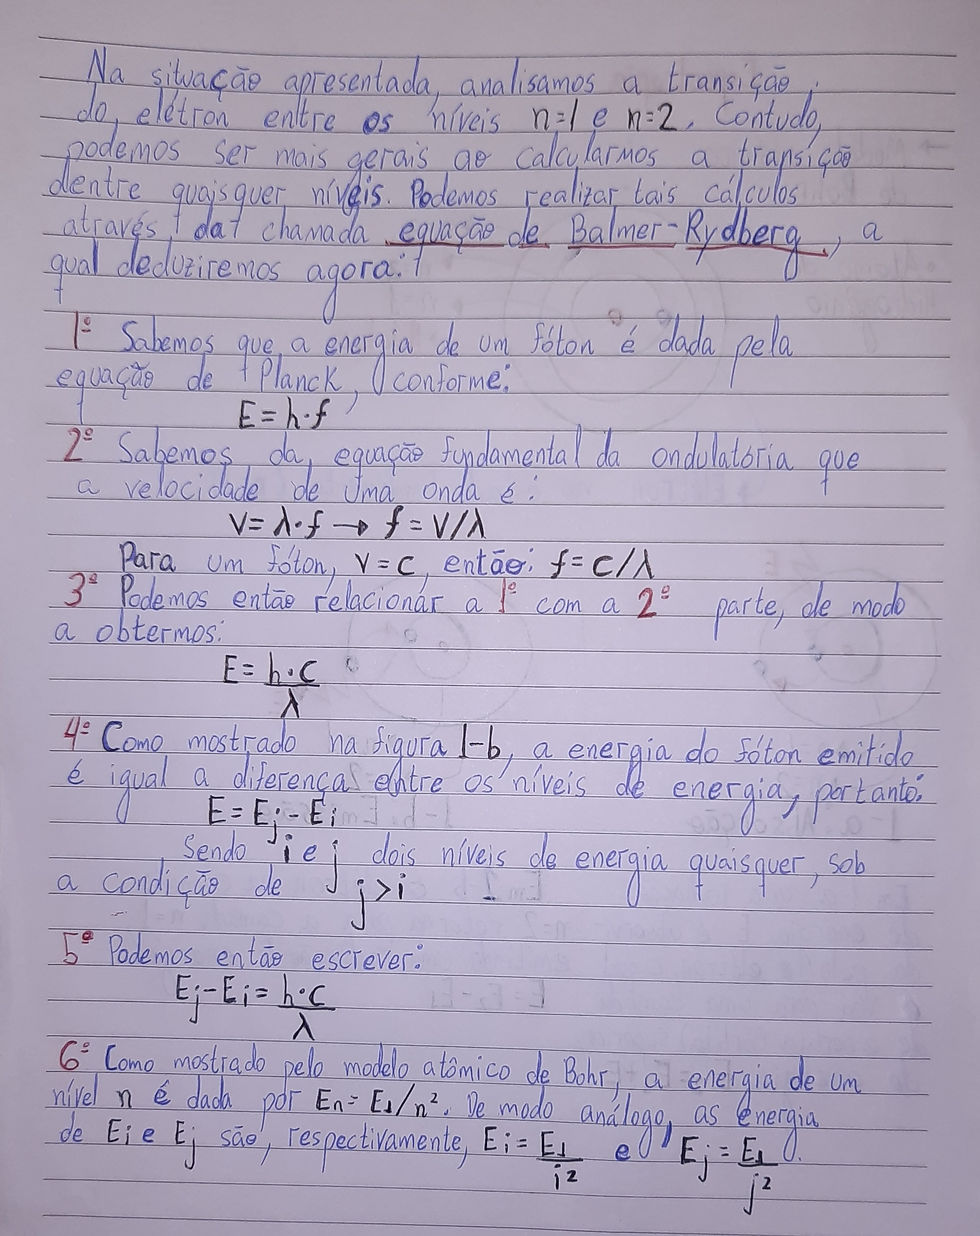 Na situação apresentada, analisamos a transição
do elétron entre os níveis n=1 e n=2. Contudo,
podemos ser mais gerais ao calcularmos a transição
dentre quaisquer níveis. Podemos realizar tais cálculos
através da chamada equação de Balmer-Rydberg, a
qual deduziremos agora:
1º Sabemos que a energia de um fóton é dada pela
equação de Planck, conforme:
E = h·f
2º Sabemos da equação fundamental da ondulatória que
a velocidade de uma onda é:
V = λ·f → f = V/λ
Para um fóton, V = C, então: f = C/λ
3º Podemos então relacionar a 1º com a 2º parte, de modo
a obtermos:
E = h·C
λ
4º Como mostrado na figura 1-b, a energia do fóton emitido
é igual a diferença entre os níveis de energia, portanto:
E = Ej - Ei
Sendo i e j dois níveis de energia quaisquer, sob
a condição de j > i
5º Podemos então escrever:
Ej - Ei = h·C
λ
6º Como mostrado pelo modelo atômico de Bohr, a energia de um
nível n é dada por En = E1/n². De modo análogo, as energia
de Ei e Ej são, respectivamente, Ei = E1 e Ej = E1.
i² j²